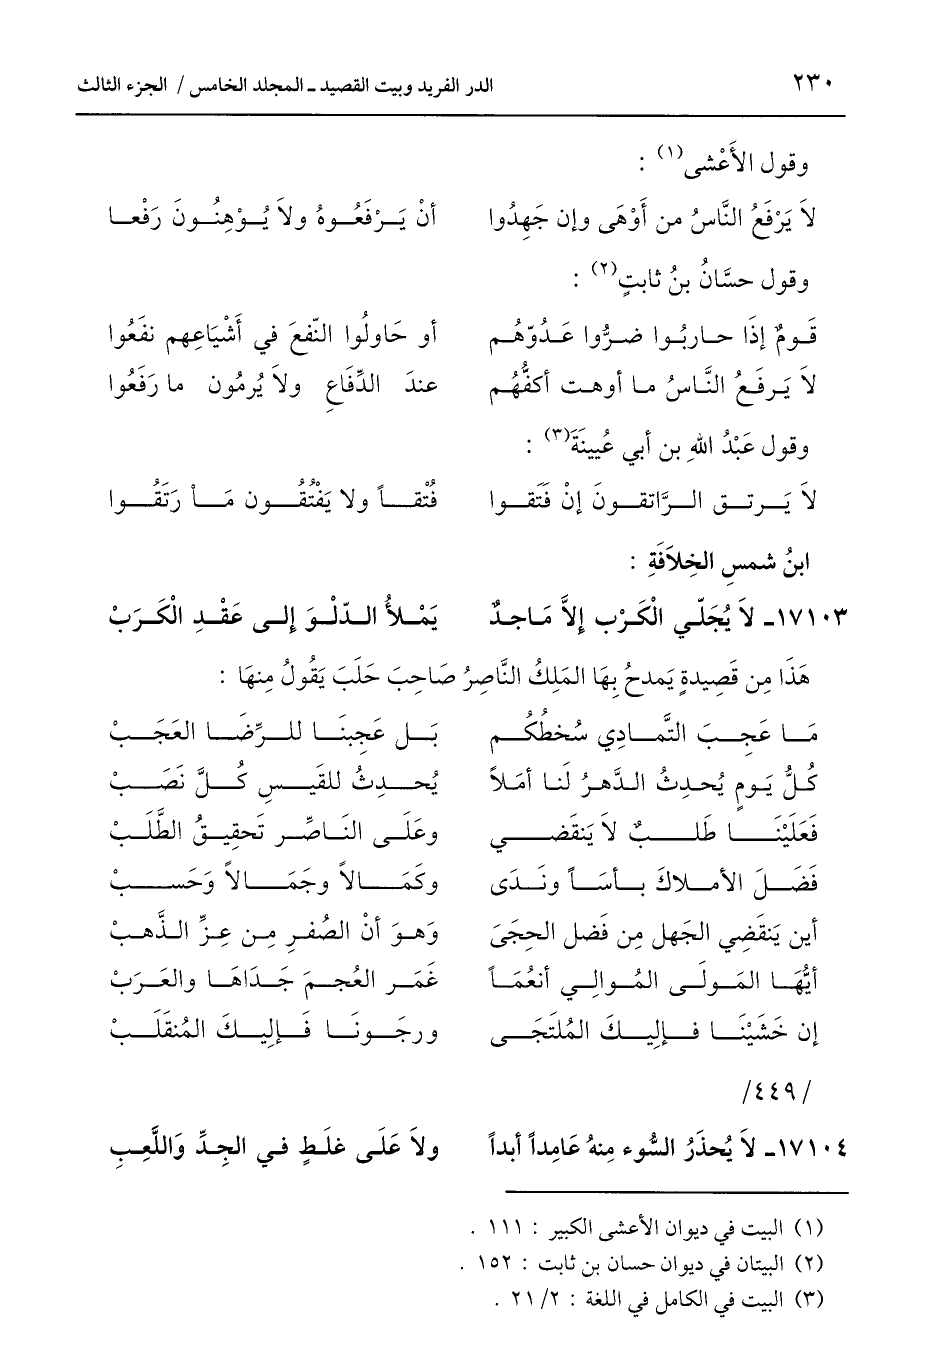 ٢٣٠ الدر الفريد وبيت القصيد ـ المجلد الخامس / الجزء الثالث
وقول الأَعْشى(١) :
لاَ يَرْفَعُ النَّاسُ من أَوْهَى وإن جَهِدُوا أنْ يَرْفَعُوهُ ولاَ يُوْهِنُونَ رَفْعا
وقول حسَّانُ بنُ ثابتٍ(٢) :
قَومٌ إذَا حاربُوا ضرُّوا عَدُوّهُم أو حَاولُوا النّفعَ في أَشْيَاعِهم نفَعُوا
لاَ يَرفَعُ النَّاسُ ما أوهت أكفُّهُم عندَ الدِّفَاعِ ولاَ يُرمُون ما رَفَعُوا
وقول عَبْدُ اللهِ بن أبي عُيينَةَ(٣) :
لاَ يَرتق الرَّاتقونَ إنْ فَتَقوا فُتْقاً ولا يَفْتُقُون مَا رَتَقُوا
ابنُ شمسِ الخِلاَفَةِ :
١٧١٠٣ـ لاَ يُجَلّي الْكَرْبَ إلاَّ مَاجدٌ يَمْلأُ الدّلْوَ إلى عَقْدِ الْكَرَبْ
هَذَا مِن قَصِيدةٍ يَمدحُ بهَا المَلِكُ النَّاصِرُ صَاحِبَ حَلَبَ يَقُولُ مِنهَا :
مَا عَجِبَ التَّمادِي سُخطُكُم بَل عَجِبنَا للرِّضَا العَجَبْ
كُلُّ يَومٍ يُحدثُ الدَّهرُ لَنا أمَلاً يُحدثُ للقَيسِ كُلَّ نَصَبْ
فَعَلَيْنَا طَلبٌ لاَ يَنقَضي وعَلَى النَاصِّر تَحقِيقُ الطَّلَبْ
فَضَلَ الأملاكَ بأسَاً ونَدَى وكَمَالاً وجَمَالاً وَحَسبْ
أين يَنقَضِي الجَهل مِن فَضل الحِجَىَ وَهوَ أنْ الصُفرِ مِن عِزِّ الذَّهبْ
أيُّهَا المَولَى المُوالِي أنعُمَاً غَمَر العُجمَ جَدَاهَا والعَرَبْ
إن خَشَيْنَا فإليكَ المُلتَجَى ورجَونَا فَإليكَ المُنقَلَبْ
/٤٤٩/
١٧١٠٤ـ لاَ يُحذَرُ السُّوء مِنهُ عَامِداً أبداً ولاَ عَلَى غلَطٍ في الجِدِّ وَاللَّعِبِ
(١) البيت في ديوان الأعشى الكبير : ١١١ .
(٢) البيتان في ديوان حسان بن ثابت : ١٥٢ .
(٣) البيت في الكامل في اللغة : ٢١/٢ .